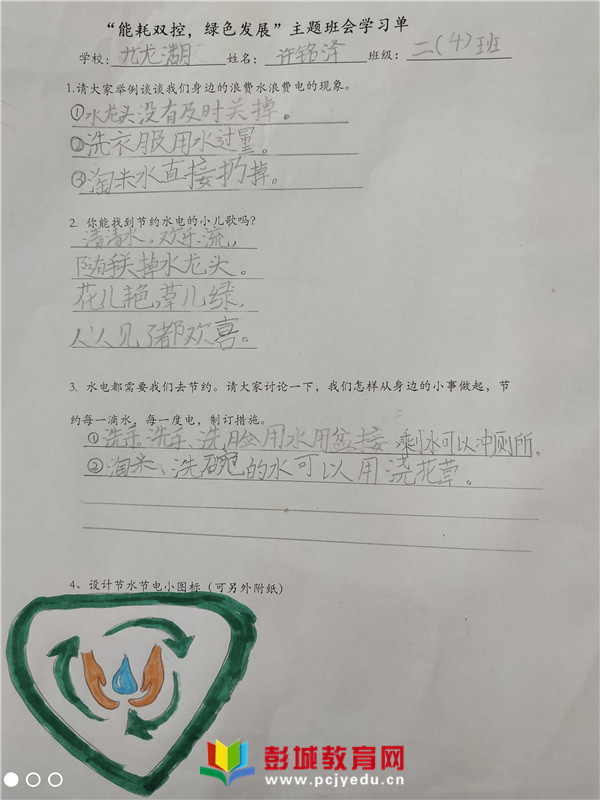 “能耗双控，绿色发展”主题班会学习单
学校：九龙湖 姓名：许铭泽 班级：二(4)班
1.请大家举例谈谈我们身边的浪费水浪费电的现象。
①水龙头没有及时关掉。
②洗衣服用水过量。
③淘米水直接扔掉。
2. 你能找到节约水电的小儿歌吗？
清清水，欢乐流，
随手关掉水龙头。
花儿艳，草儿绿，
人人见了都欢喜。
3. 水电都需要我们去节约。请大家讨论一下，我们怎样从身边的小事做起，节
约每一滴水，每一度电，制订措施。
①洗手、洗脸用水用盆接，剩水可以冲厕所。
②淘米、洗碗的水可以用浇花草。
4、设计节水节电小图标（可另外附纸）
彭城教育网
www.pcjyedu.cn